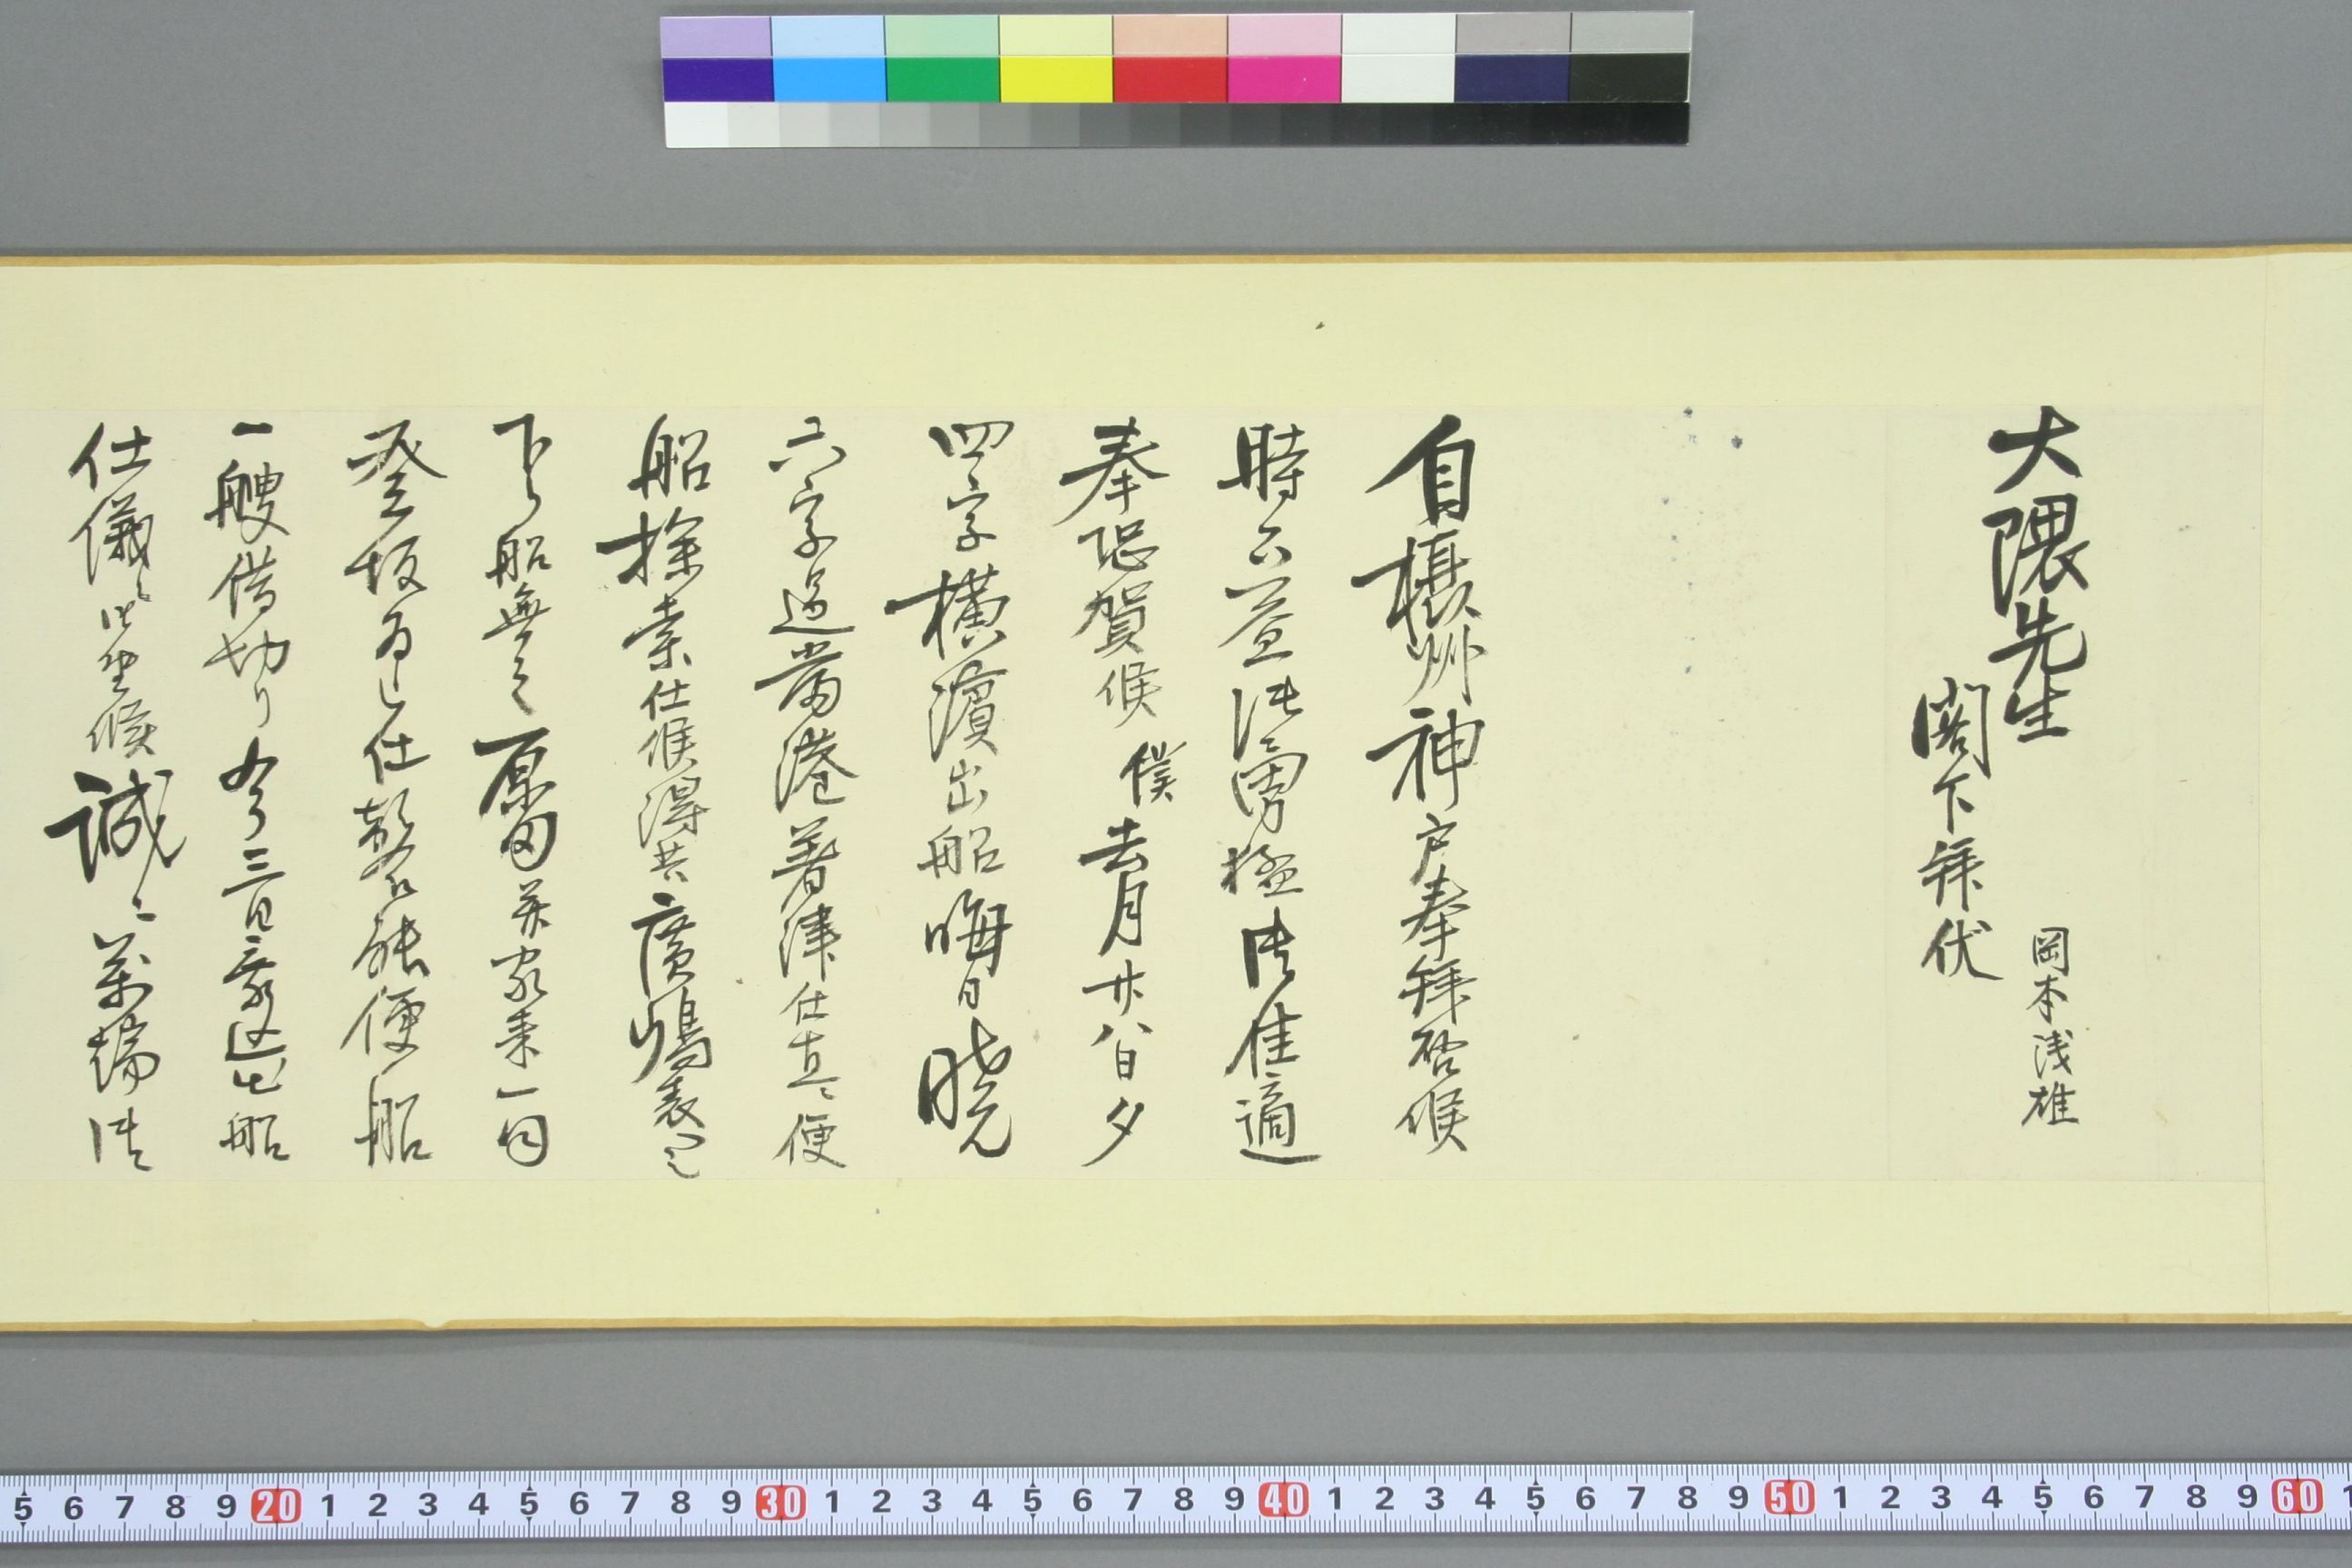 大隈先生
閣下拝伏
岡本浅雄
自摂州神戸奉拝啓候
時下益御勇極御佳適
奉恐賀候 僕去月廿八日夕
四字横濱出船晦日暁
六字過當港着津仕直ニ便
船捜索仕候得共廣嶋表迄
下り船無之 原田並家来一同
登坂為仕 能便船
一艘借切り今三日 出船
仕儀ニ御坐候誠ニ萬端御
5 6 7 8 9 20 1 2 3 4 5 6 7 8 9 30 1 2 3 4 5 6 7 8 9 40 1 2 3 4 5 6 7 8 9 50 1 2 3 4 5 6 7 8 9 60 1